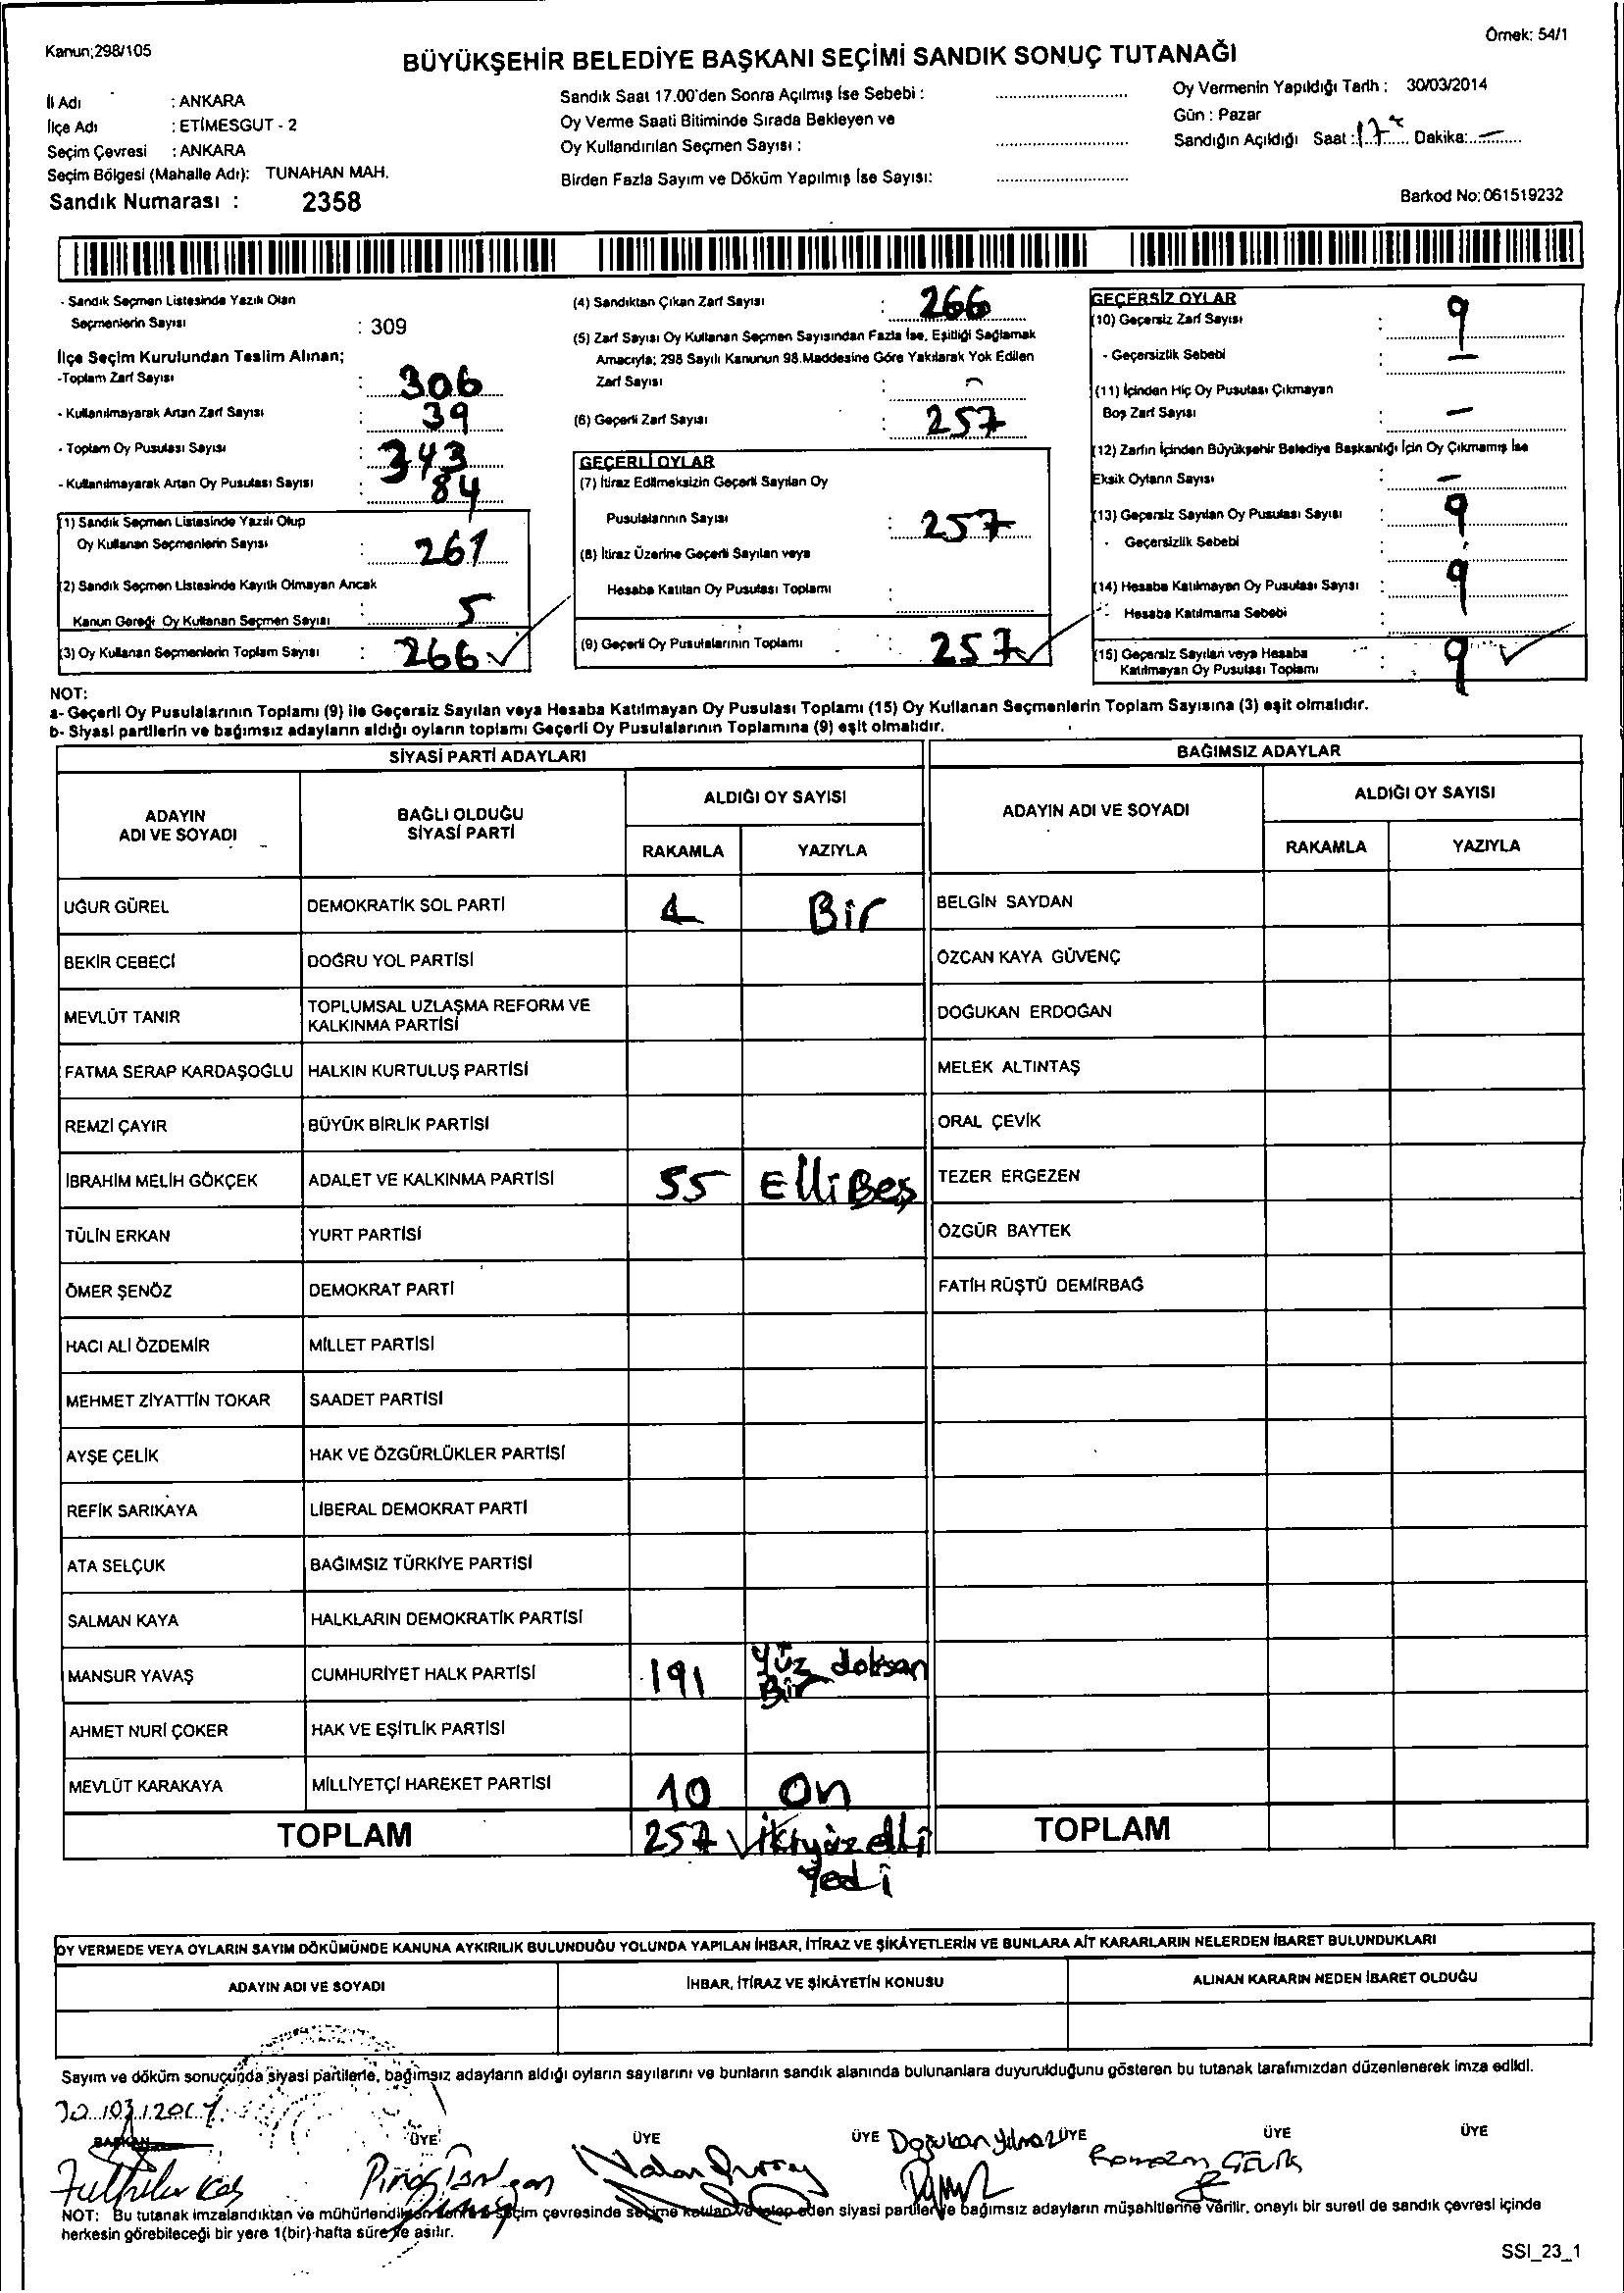 Kanun;298/105
Örnek: 54/1
BÜYÜKŞEHİR BELEDİYE BAŞKANI SEÇİMİ SANDIK SONUÇ TUTANAĞI
İl Adı : ANKARA
İlçe Adı : ETİMESGUT - 2
Seçim Çevresi : ANKARA
Seçim Bölgesi (Mahalle Adı): TUNAHAN MAH.
Sandık Numarası : 2358
Sandık Saat 17.00'den Sonra Açılmış İse Sebebi :
Oy Verme Saati Bitiminde Sırada Bekleyen ve
Oy Kullandırılan Seçmen Sayısı :
Birden Fazla Sayım ve Döküm Yapılmış İse Sayısı:
Oy Vermenin Yapıldığı Tarih : 30/03/2014
Gün : Pazar
Sandığın Açıldığı Saat : 17 Dakika: —
Barkod No: 061519232
- Sandık Seçmen Listesinde Yazılı Olan
Seçmenlerin Sayısı : 309
İlçe Seçim Kurulundan Teslim Alınan;
-Toplam Zarf Sayısı : 306
- Kullanılmayarak Artan Zarf Sayısı : 39
- Toplam Oy Pusulası Sayısı : 343
- Kullanılmayarak Artan Oy Pusulası Sayısı : 84
(1) Sandık Seçmen Listesinde Yazılı Olup
Oy Kullanan Seçmenlerin Sayısı : 261
(2) Sandık Seçmen Listesinde Kayıtlı Olmayan Ancak
Kanun Gereği Oy Kullanan Seçmen Sayısı : 5
(3) Oy Kullanan Seçmenlerin Toplam Sayısı : 266
(4) Sandıktan Çıkan Zarf Sayısı : 266
(5) Zarf Sayısı Oy Kullanan Seçmen Sayısından Fazla İse, Eşitliği Sağlamak
Amacıyla; 298 Sayılı Kanunun 98.Maddesine Göre Yakılarak Yok Edilen
Zarf Sayısı :
(6) Geçerli Zarf Sayısı : 257
GEÇERLİ OYLAR
(7) İtiraz Edilmeksizin Geçerli Sayılan Oy
Pusulalarının Sayısı : 257
(8) İtiraz Üzerine Geçerli Sayılan veya
Hesaba Katılan Oy Pusulası Toplamı :
(9) Geçerli Oy Pusulalarının Toplamı : 257
GEÇERSİZ OYLAR
(10) Geçersiz Zarf Sayısı : 9
- Geçersizlik Sebebi : —
(11) İçinden Hiç Oy Pusulası Çıkmayan
Boş Zarf Sayısı : —
(12) Zarfın İçinden Büyükşehir Belediye Başkanlığı İçin Oy Çıkmamış İse
Eksik Oyların Sayısı : —
(13) Geçersiz Sayılan Oy Pusulası Sayısı : 9
- Geçersizlik Sebebi :
(14) Hesaba Katılmayan Oy Pusulası Sayısı : 9
- Hesaba Katılmama Sebebi :
(15) Geçersiz Sayılan veya Hesaba
Katılmayan Oy Pusulası Toplamı : 9
NOT:
a- Geçerli Oy Pusulalarının Toplamı (9) ile Geçersiz Sayılan veya Hesaba Katılmayan Oy Pusulası Toplamı (15) Oy Kullanan Seçmenlerin Toplam Sayısına (3) eşit olmalıdır.
b- Siyasi partilerin ve bağımsız adayların aldığı oyların toplamı Geçerli Oy Pusulalarının Toplamına (9) eşit olmalıdır.
SİYASİ PARTİ ADAYLARI
ADAYIN ADI VE SOYADI
BAĞLI OLDUĞU SİYASİ PARTİ
ALDIĞI OY SAYISI
RAKAMLA YAZIYLA
UĞUR GÜREL DEMOKRATİK SOL PARTİ 1 Bir
BEKİR CEBECİ DOĞRU YOL PARTİSİ
MEVLÜT TANIR TOPLUMSAL UZLAŞMA REFORM VE KALKINMA PARTİSİ
FATMA SERAP KARDAŞOĞLU HALKIN KURTULUŞ PARTİSİ
REMZİ ÇAYIR BÜYÜK BİRLİK PARTİSİ
İBRAHİM MELİH GÖKÇEK ADALET VE KALKINMA PARTİSİ 55 Elli Beş
TÜLİN ERKAN YURT PARTİSİ
ÖMER ŞENÖZ DEMOKRAT PARTİ
HACI ALİ ÖZDEMİR MİLLET PARTİSİ
MEHMET ZİYATTİN TOKAR SAADET PARTİSİ
AYŞE ÇELİK HAK VE ÖZGÜRLÜKLER PARTİSİ
REFİK SARIKAYA LİBERAL DEMOKRAT PARTİ
ATA SELÇUK BAĞIMSIZ TÜRKİYE PARTİSİ
SALMAN KAYA HALKLARIN DEMOKRATİK PARTİSİ
MANSUR YAVAŞ CUMHURİYET HALK PARTİSİ 191 Yüz doksan Bir
AHMET NURİ ÇOKER HAK VE EŞİTLİK PARTİSİ
MEVLÜT KARAKAYA MİLLİYETÇİ HAREKET PARTİSİ 10 On
TOPLAM 257 İkiyüz elli Yedi
BAĞIMSIZ ADAYLAR
ADAYIN ADI VE SOYADI
ALDIĞI OY SAYISI
RAKAMLA YAZIYLA
BELGİN SAYDAN
ÖZCAN KAYA GÜVENÇ
DOĞUKAN ERDOĞAN
MELEK ALTINTAŞ
ORAL ÇEVİK
TEZER ERGEZEN
ÖZGÜR BAYTEK
FATİH RÜŞTÜ DEMİRBAĞ
TOPLAM
OY VERMEDE VEYA OYLARIN SAYIM DÖKÜMÜNDE KANUNA AYKIRILIK BULUNDUĞU YOLUNDA YAPILAN İHBAR, İTİRAZ VE ŞİKÂYETLERİN VE BUNLARA AİT KARARLARIN NELERDEN İBARET BULUNDUKLARI
ADAYIN ADI VE SOYADI
İHBAR, İTİRAZ VE ŞİKÂYETİN KONUSU
ALINAN KARARIN NEDEN İBARET OLDUĞU
Sayım ve döküm sonucunda siyasi partilerle, bağımsız adayların aldığı oyların sayılarını ve bunların sandık alanında bulunanlara duyurulduğunu gösteren bu tutanak tarafımızdan düzenlenerek imza edildi.
30/03/2014
BAŞKAN ÜYE ÜYE ÜYE ÜYE ÜYE ÜYE
Doğukan Yılmaz
NOT: Bu tutanak imzalandıktan ve mühürlendikten sonra seçim çevresinde seçime katılan ve talep eden siyasi partiler ve bağımsız adayların müşahitlerine verilir, onaylı bir sureti de sandık çevresi içinde
herkesin görebileceği bir yere 1(bir) hafta süre ile asılır.
SSI_23_1